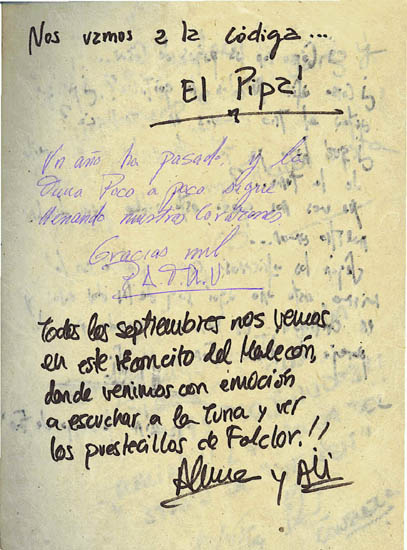 Nos vamos a la códiga...
El Pipa!
Un año ha pasado, y la
Tuna Poco a poco sigue
llenando nuestros Corazones
Gracias mil
Todos los septiembres nos vemos
en este reconcito del Malecón,
donde venimos con emoción
a escuchar a la Tuna y ver
los puestecillos de Folclor.!!
y Ali